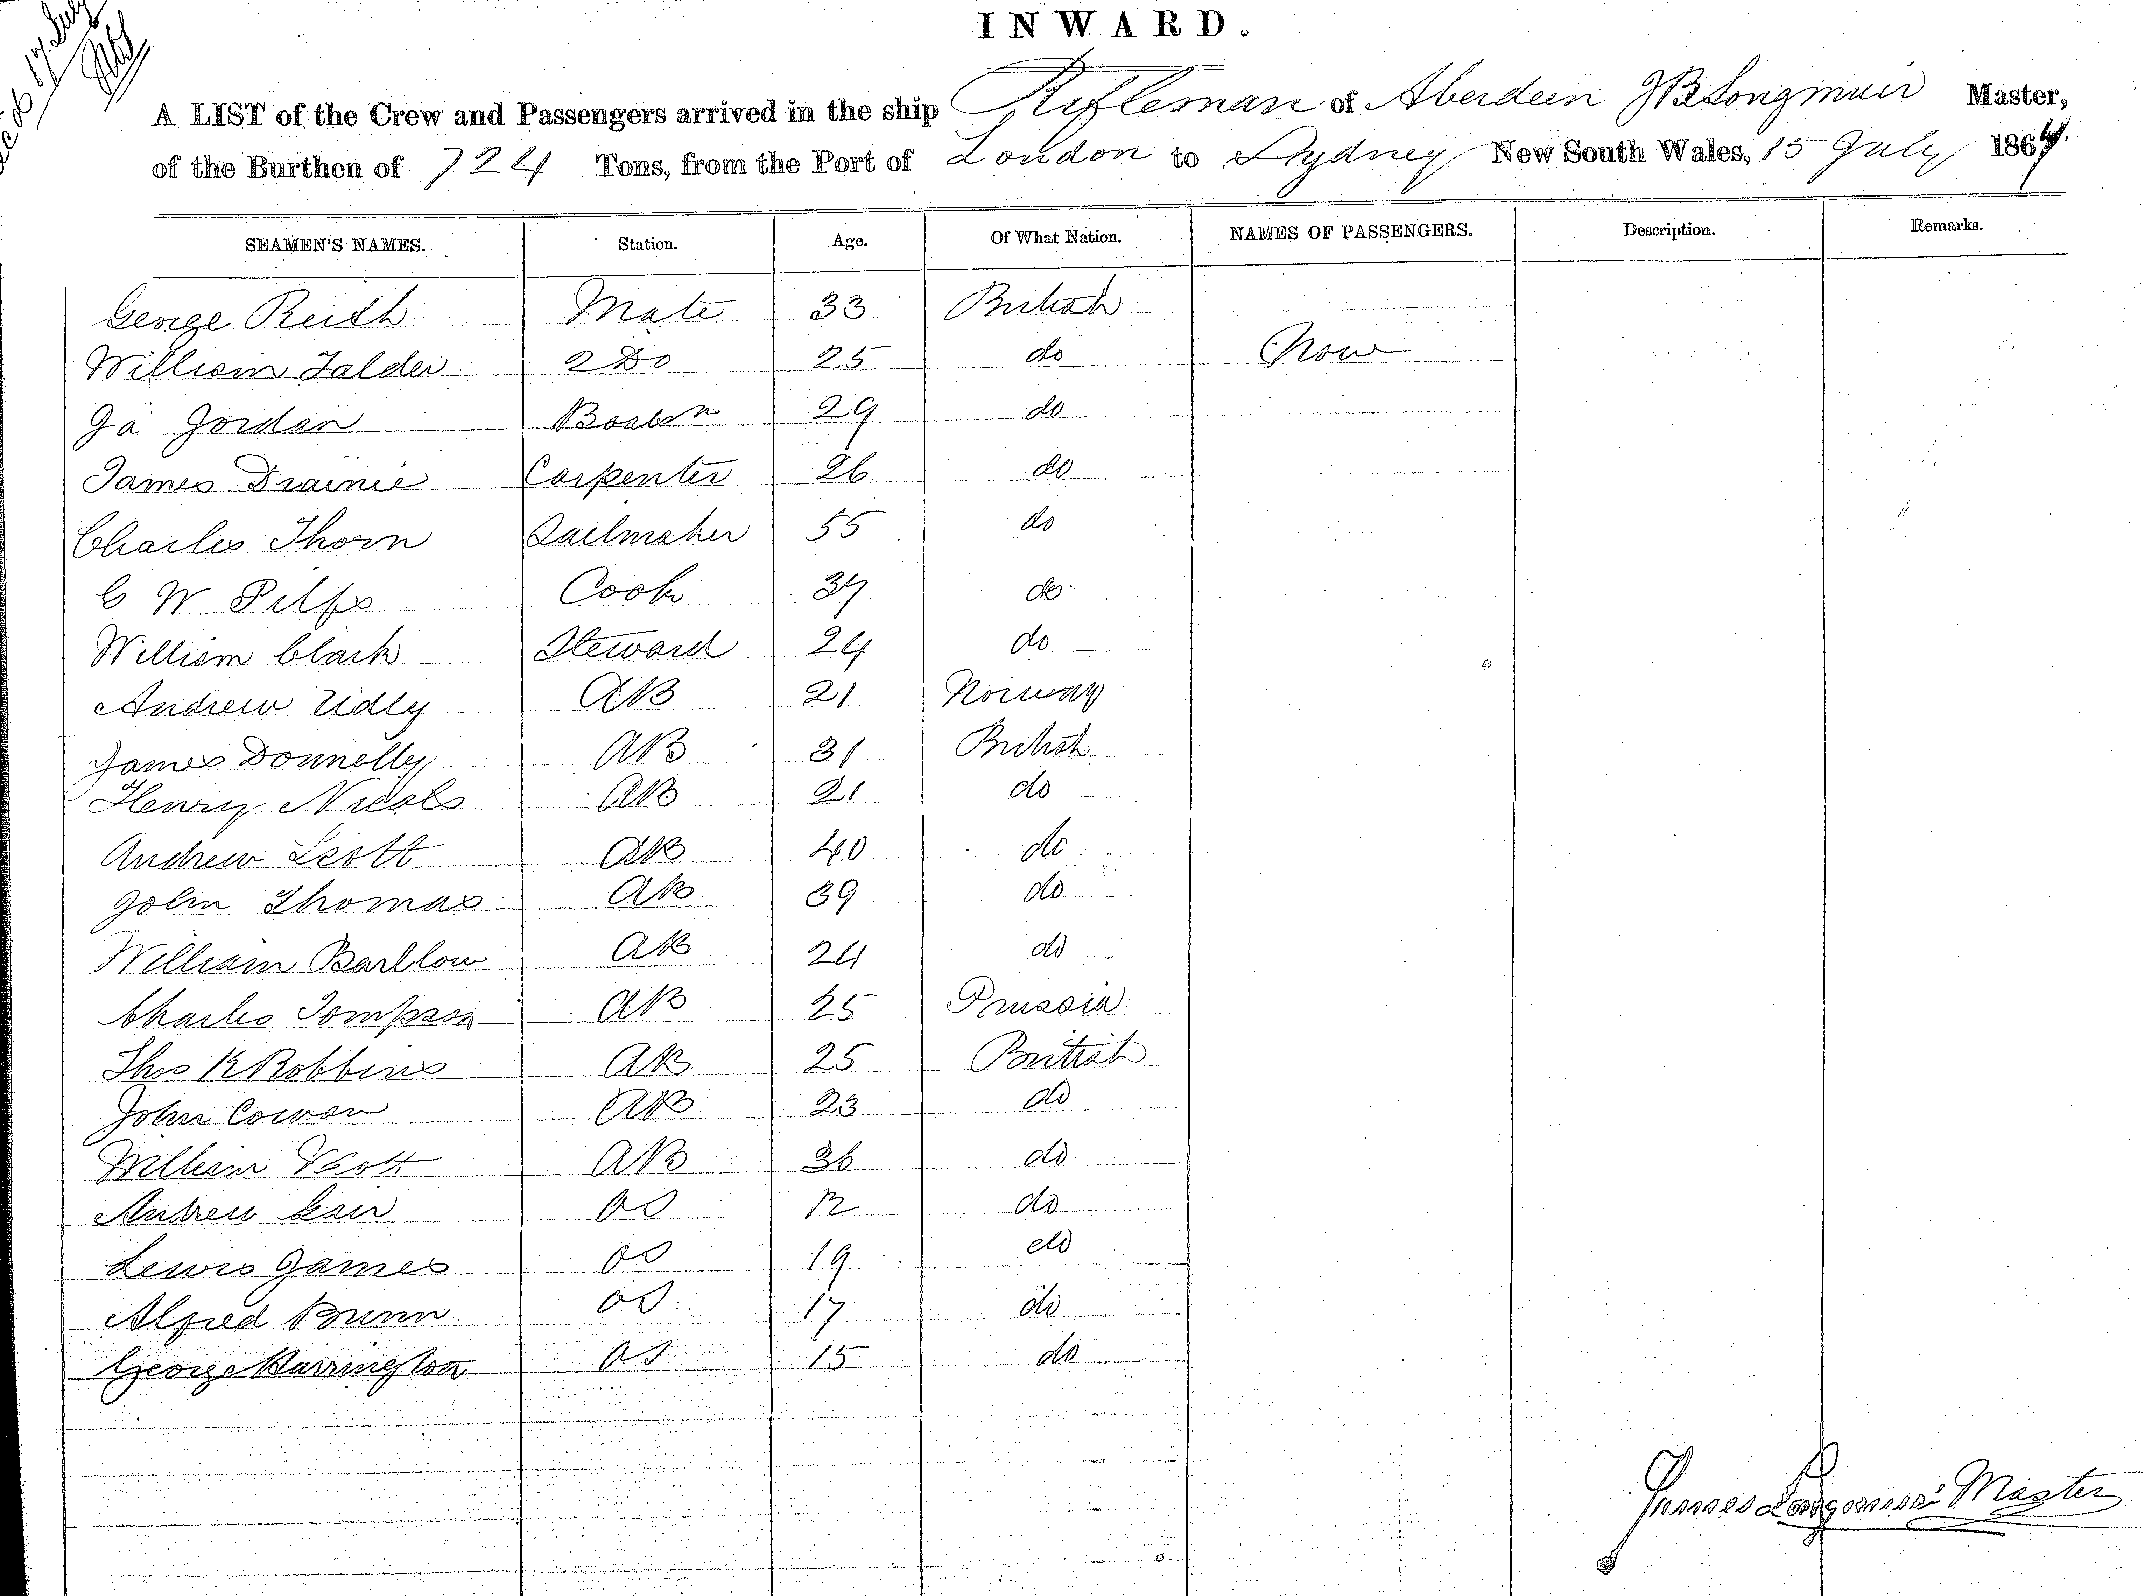 17 July
INWARD.
A LIST of the Crew and Passengers arrived in the ship Rifleman of Aberdeen JB Longmuir Master,
of the Burthen of 724 Tons, from the Port of London to Sydney New South Wales, 15 July 1864.
SEAMEN'S NAMES. Station. Age. Of What Nation. NAMES OF PASSENGERS. Description. Remarks.
George Reith Mate 33 British
William Falder 2 Do 25 do None
Ja Jordan Boatsn 29 do
James Drainie Carpenter 26 do
Charles Thorn Sailmaker 55 do
C W Pilfs Cook 37 do
William Clark Steward 24 do
Andrew Udly AB 21 Norway
James Donnelly AB 31 British
Henry Nicols AB 21 do
Andrew Scott AB 40 do
John Thomas AB 39 do
William Barllow AB 24 do
Charles Tompson AB 25 Prussia
Thos R Robbins AB 25 British
John Cowan AB 23 do
William Scott AB 36 do
Andrew OS do
Lewis James OS 19 do
Alfred Bunn OS 17 do
George Harrington OS 15 do
James Longmuir Master